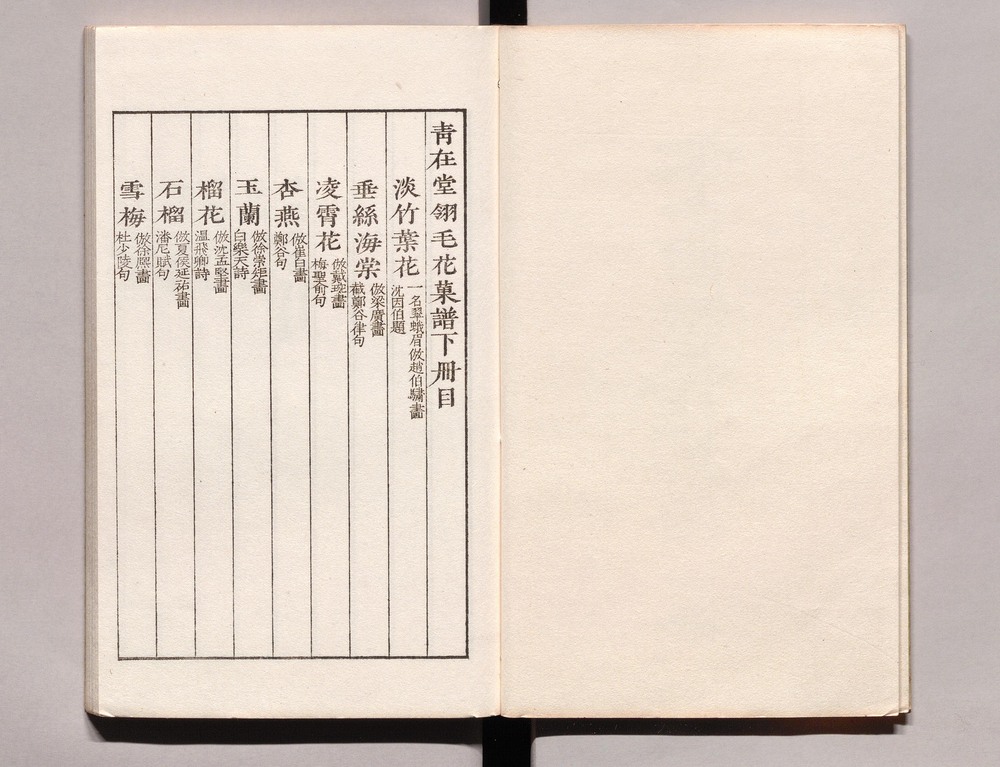 靑在堂翎毛花菓譜下冊目
淡竹葉花 一名翠蛾眉倣趙伯驌畵 沈因伯題
垂絲海棠 倣梁廣畵 截鄭谷律句
凌霄花 倣戴琬畵 梅聖俞句
杏燕 倣崔白畵 鄭谷句
玉蘭 倣徐崇矩畵 白樂天詩
榴花 倣沈孟堅畵 溫飛卿詩
石榴 倣夏侯延祐畵 潘尼賦句
雪梅 倣徐熙畵 杜少陵句